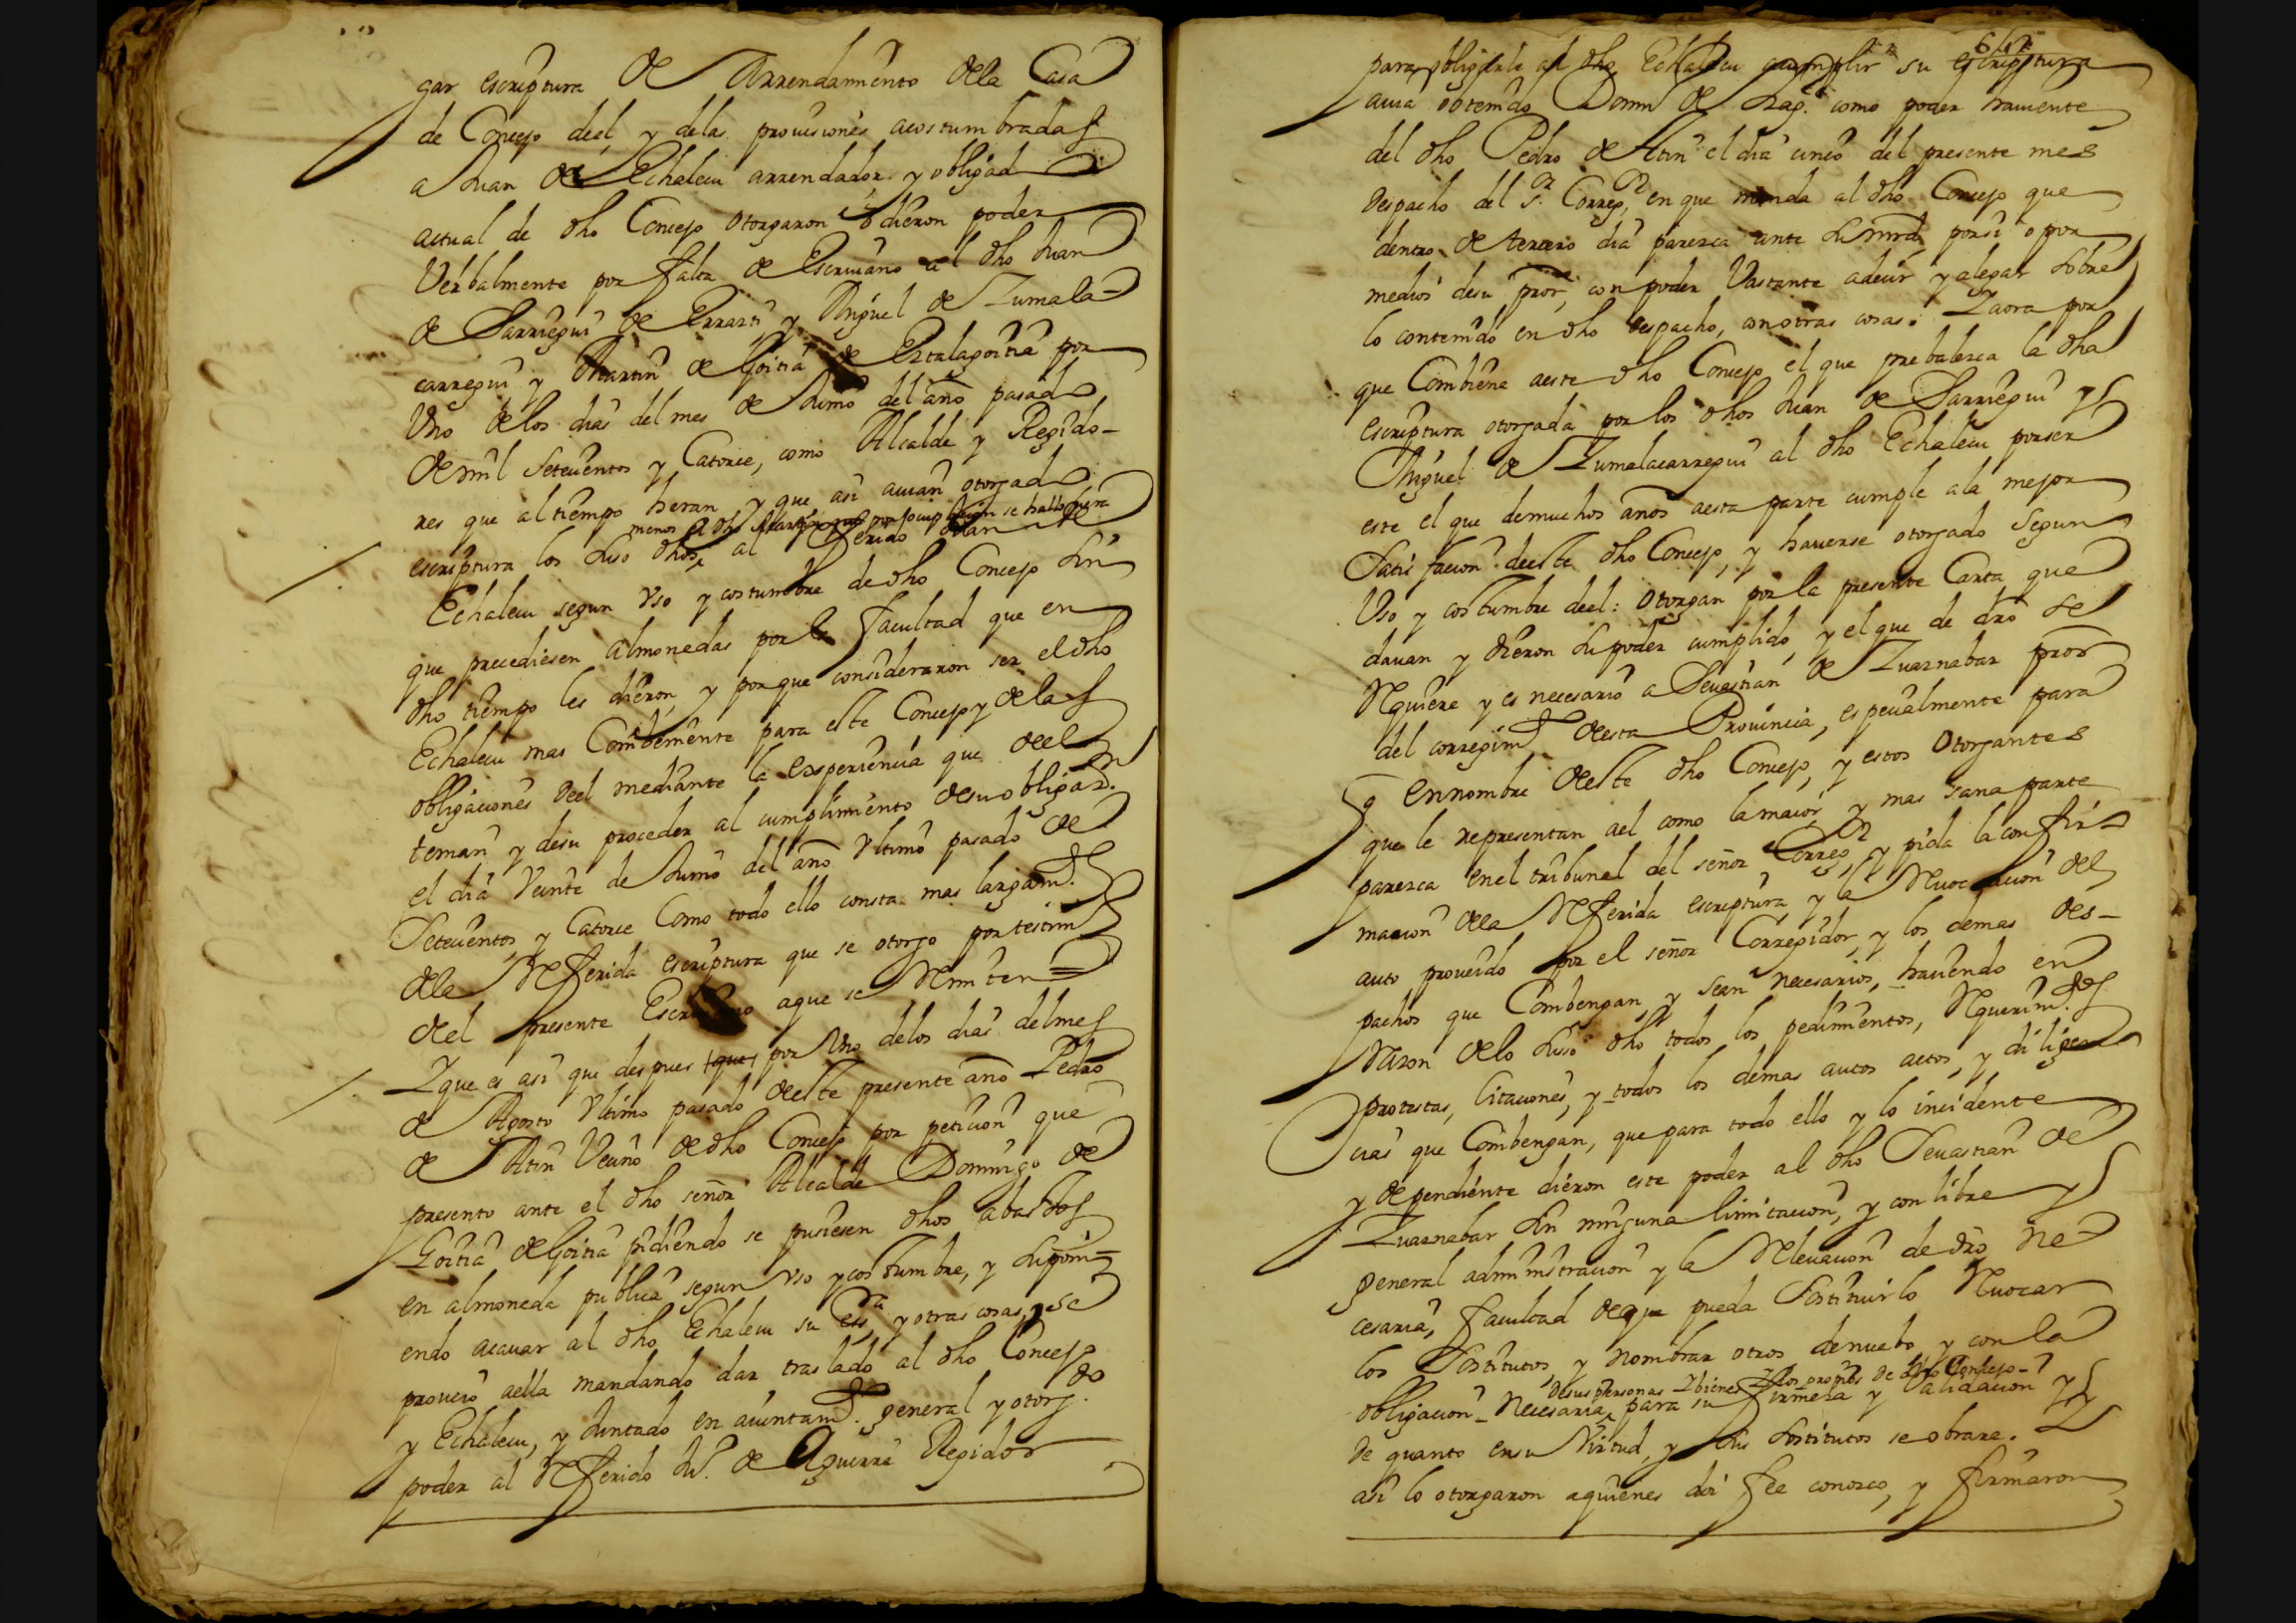 gar escriptura de Arrendamiento dela Casa
de Concejo deel, y delas prouisiones acostumbradas
a Juan de Echalecu arrendador y obligado
actual de dho Concejo otorgaron o dieron poder
Verbalmente por falta de Escriuano al dho Juan
de Sarriegui de Errazti y Miguel de Zumala-
carregui y Martin de Goitia de Eztalagoitia por
Uno de los dias del mes de Junio del año pasado
de mil Setecientos y Catorce, como Alcalde y Regido-
res que al tiempo heran y que asi auian otorgado
menos el dho Martin que por ocupazion se hallo fuera
escriptura los suso dhos al Referido Juan de
Echalecu segun vso y costumbre de dho Concejo sin
que precediesen Almonedas por la facultad que en
dho tiempo les dieron, y porque consideraron ser el dho
Echalecu mas Combeniente para este Concejo y delas
obligaciones deel mediante la experiencia que deel
tenian y desu proceder al cumplimiento desu obligaz.
el dia Veinte de Junio del año vltimo pasado de
Setecientos, y Catorce Como todo ello consta mas largam.te
dela Referida escriptura que se otorgo por testim.o
del presente Escriuano aque se Remiten =
Y que es asi que despues que por Uno delos dias del mes
de Agosto vltimo pasado deeste presente año Pedro
de Atin Vecino de dho Concejo por peticion que
presento ante el dho señor Alcalde Domingo de
Goitia de Goitia pidiendo se pusiesen dhos abastos
en almoneda publica segun vso y costumbre, y suponi-
endo acauar al dho Echalecu su es.ra y otras cosas, se
proueio aella mandando dar traslado al dho Concejo
y Echalecu, y Juntado en aiuntam.to general y otorg.do
poder al Referido Ju.o de Aguirre Regidor
para obligarle al dho Echalecu cumplir su escriptura
auia obtenido Domin.o de como poder hauiente
del dho Pedro de Atin el dia cinco del presente mes
despacho del S.r Correg.or en que manda al dho Concejo que
dentro de tercero dia parezca ante su mrd, por si o por
medios desu pror, con poder Vastante adecir y alegar sobre
lo contenido en dho despacho, con otras cosas. Y aora por
que Combiene aeste dho Concejo el que prebalezca la dha
escriptura otorgada por los dhos Juan de Sarriegui y
Miguel de Zumalacarregui al dho Echalecu por ser
este el que demuchos años aesta parte cumple ala mejor
Satisfacion deeste dho Concejo, y hauerse otorgado Segun
Uso y costumbre deel: Otorgan por la presente Carta que
dauan y dieron su poder cumplido, y el que de dro se
Requiere y es necesario a Seuastian de Zuarnabar pror
del corregim.to desta Prouincia, especialmente para
q en nombre deeste dho Concejo, y estos Otorgantes
que le representan ael como la maior y mas sana parte
parezca en el tribunal del señor Correg.or y pida la confir-
macion dela Referida escriptura y la Reuocacion del
auto proueido por el señor Corregidor, y los demas des-
pachos que Combengan, y sean necesarios, haciendo en
Razon delo suso dho todos los pedimientos, Requerim.tos
protestas, Citaciones, y todos los demas autos actos, y diligen-
cias que Combengan, que para todo ello y lo incidente
y dependiente dieron este poder al dho Seuastian de
Zuarnabar sin ninguna limitacion, y con libre y
general administracion y la Releuacion de dro ne-
cesaria, facultad de que pueda Sostituirlo Reuocar
los Sostitutos, y nombrar otros denuebo y con la
desus personas y bienes y los propios de dho Concejo
obligacion necesaria, para su firmeza y Validacion y
de quanto en su Virtud, y sus sostitutos se obrare. Y
asi lo otorgaron aquienes doi fee conozco, y firmaron